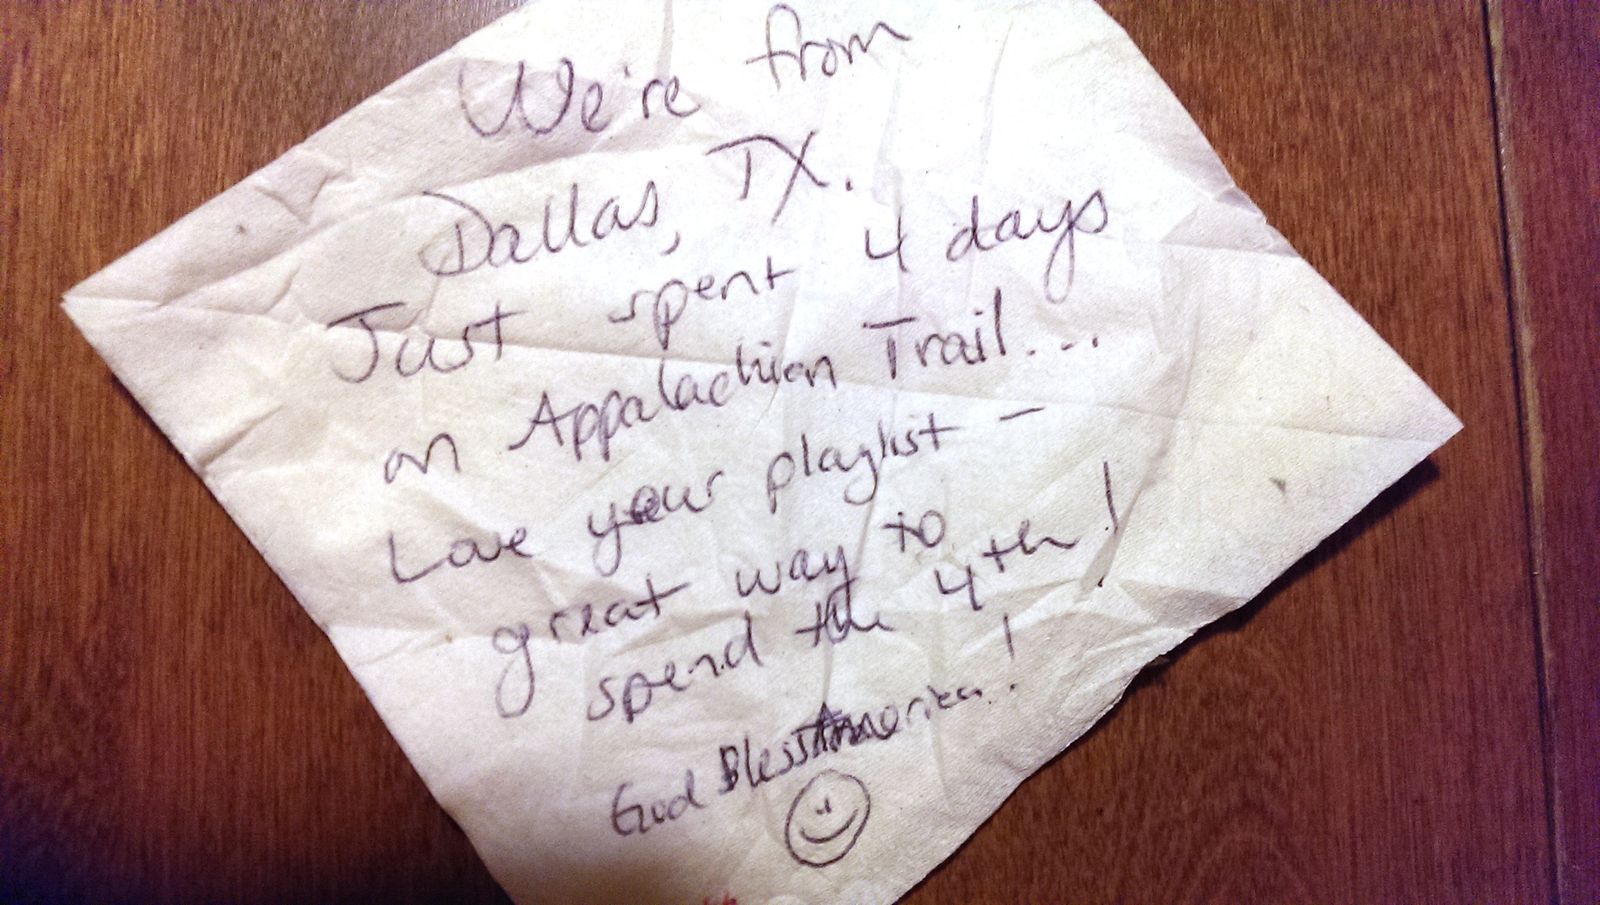 We're from
Dallas, TX.
Just spent 4 days
on Appalachian Trail...
Love your playlist –
great way to
spend the 4th!
God Bless America!